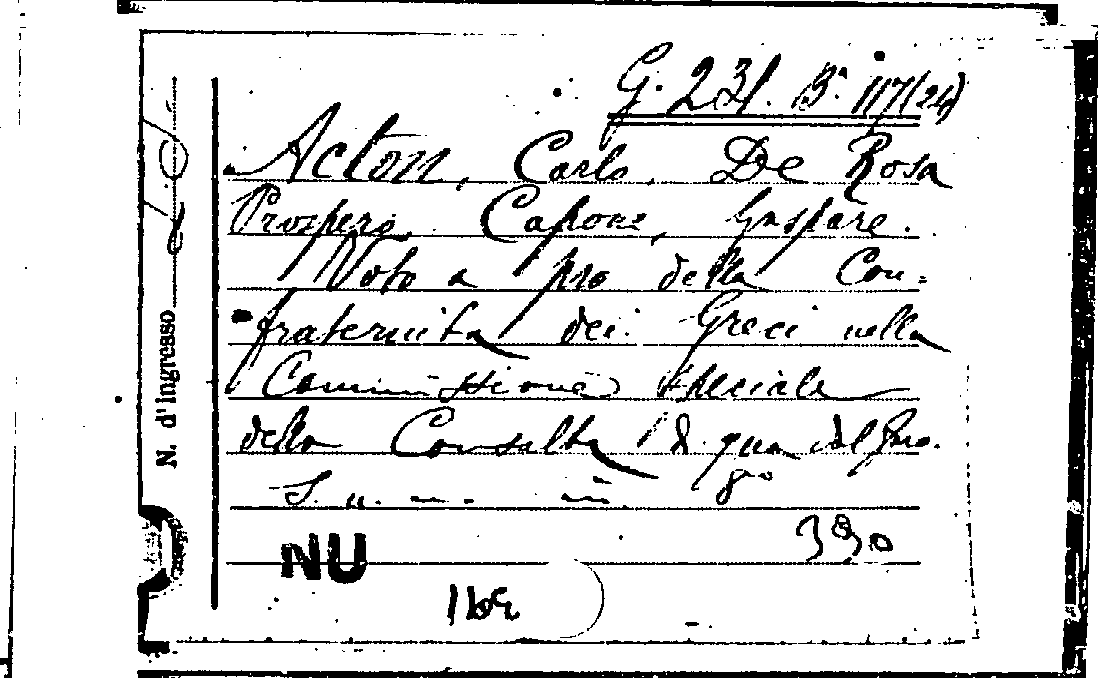 G. 231. B.ª 117(24)
Acton, Carlo, De Rosa
Prospero, Capone, Gaspare.
Voto a pro della Con=
fraternita dei Greci nella
Commissione speciale
della Consulta di qua dal Faro.
S. u. in 8º
390
NU
N. d'Ingresso